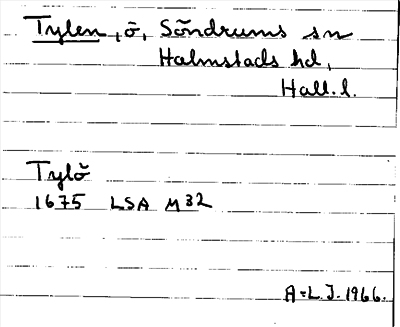 Tylen, ö, Söndrums sn
Halmstads hd,
Hall. l.
Tylö
1675 LSA M32
A-L. J. 1966.